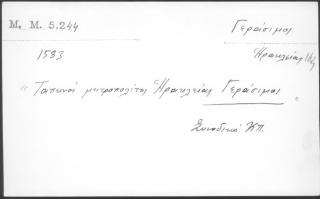 M. M. 5.244
Γεράσιμος
Ἡρακλείας
1583
"Ταπεινός μητροπολίτης Ἡρακλείας Γεράσιμος"
Συνοδικά ΚΠ.